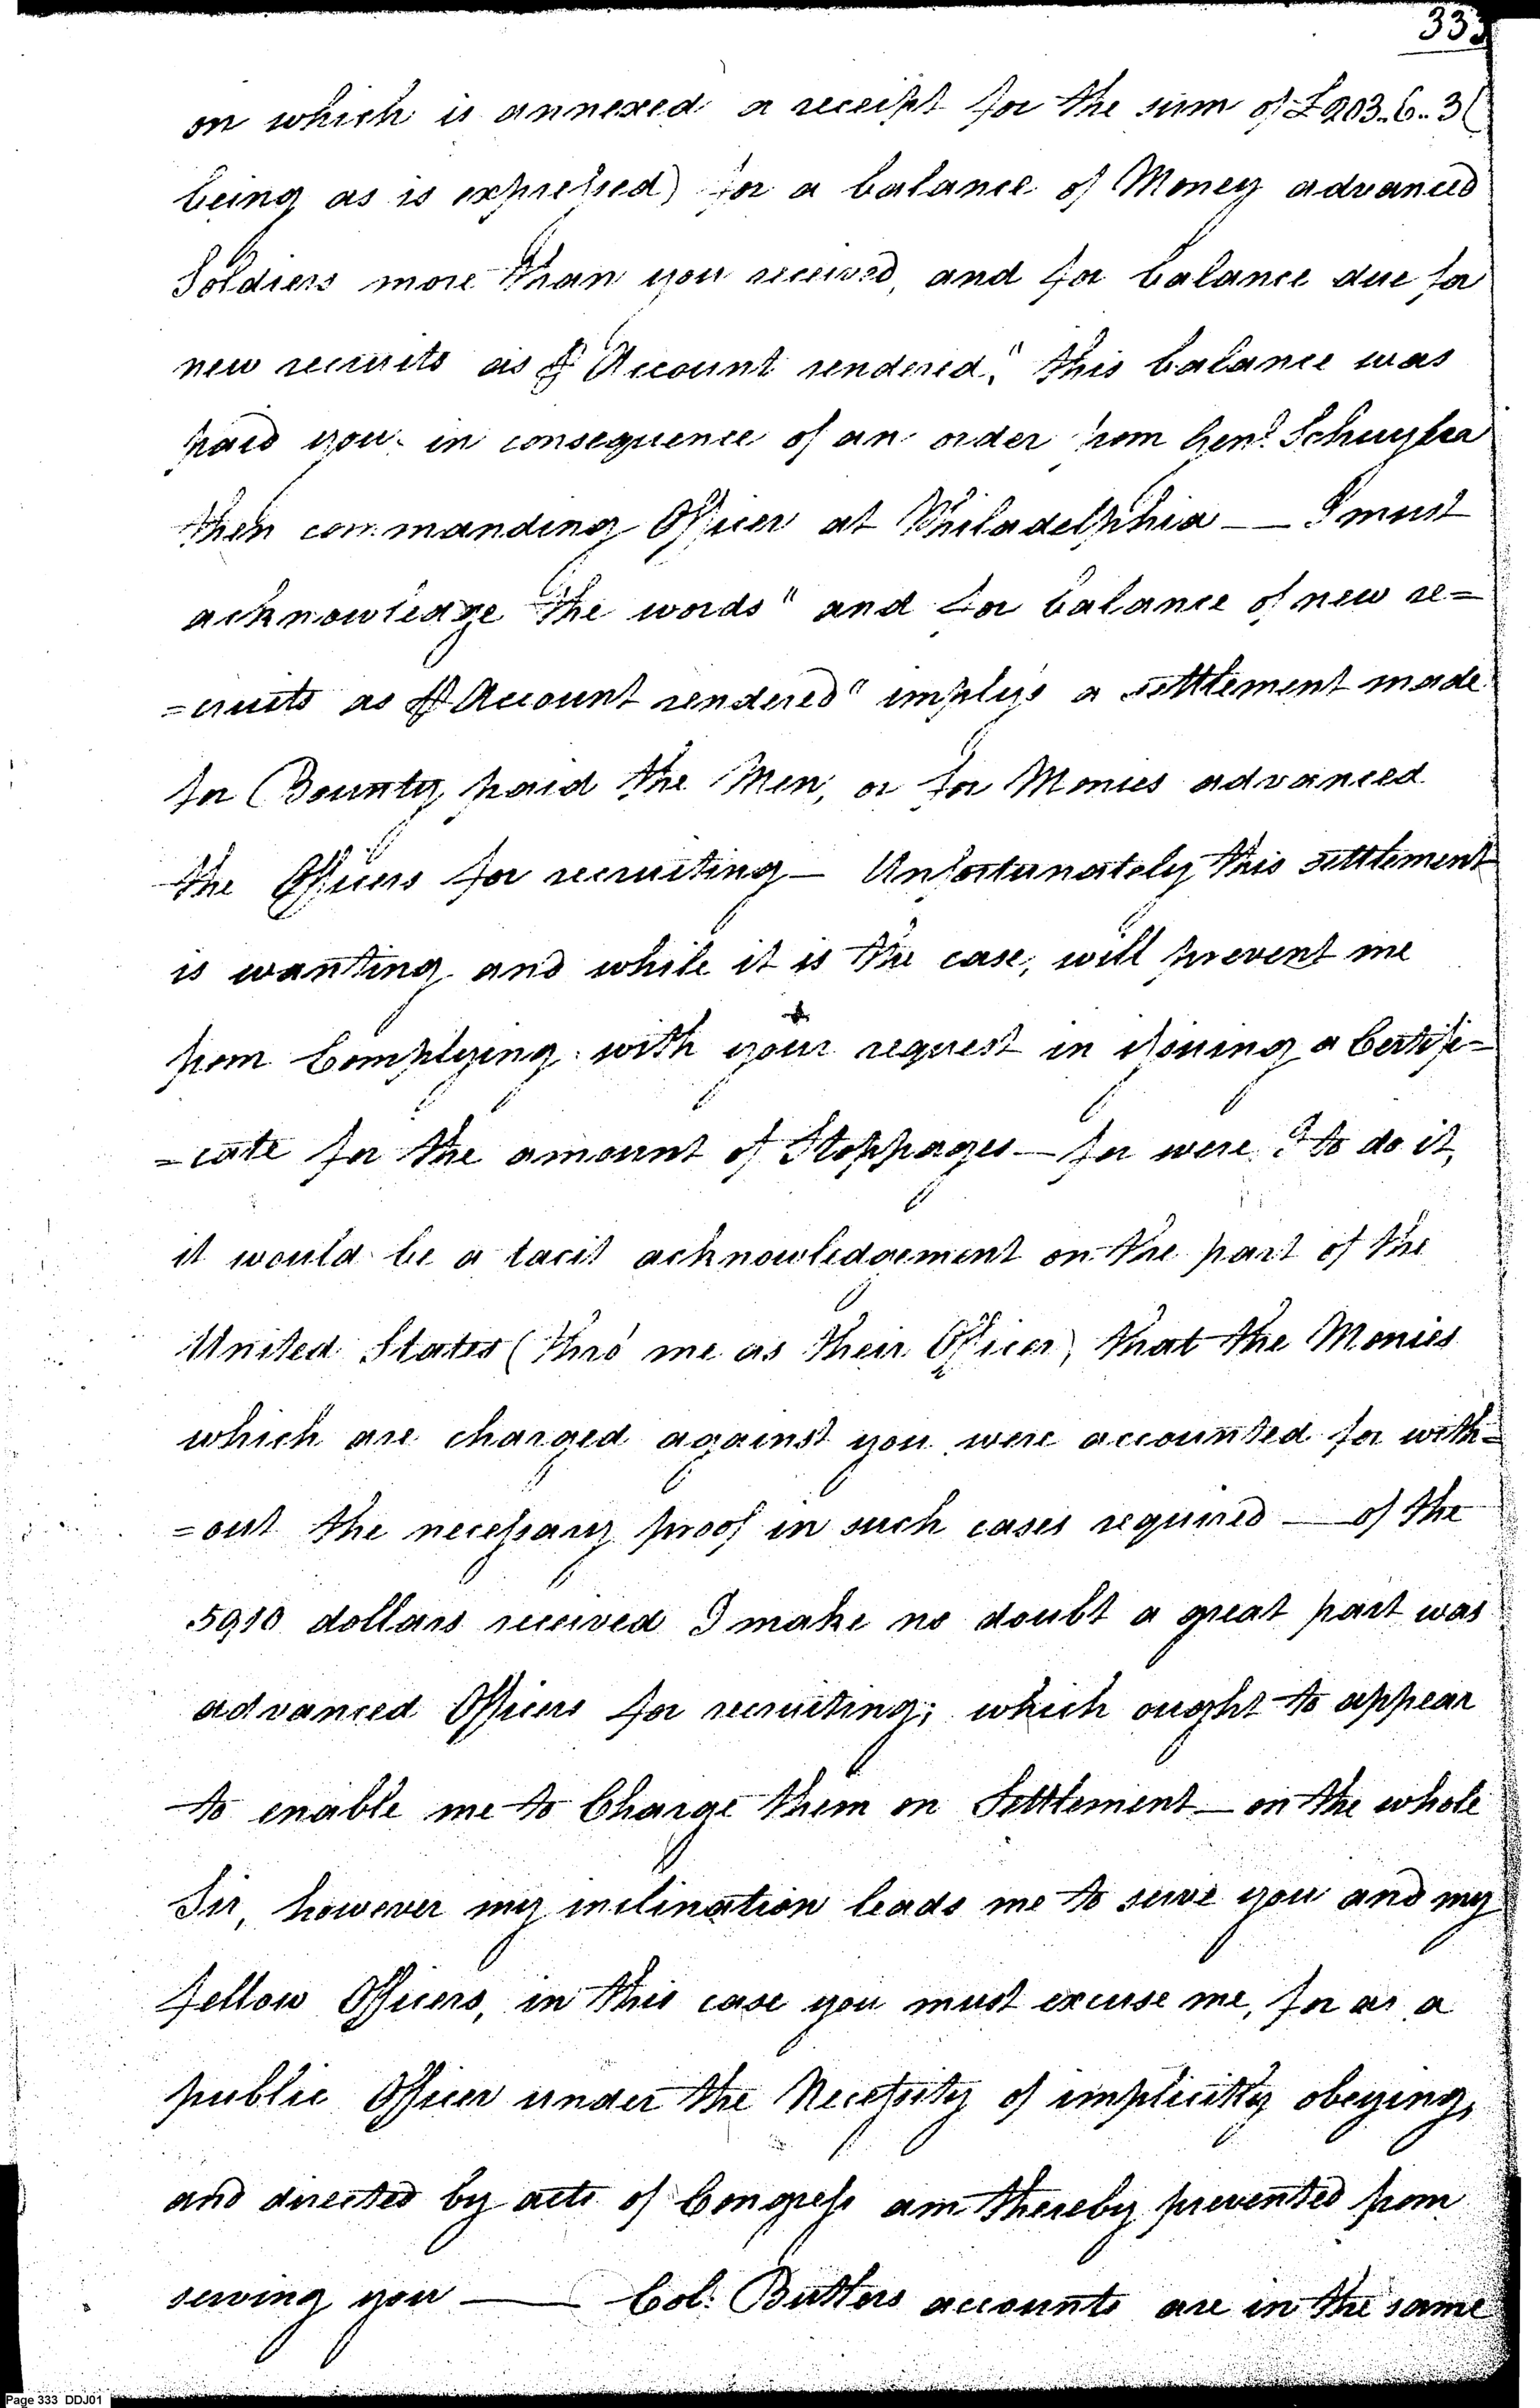 333
on which is annexed a receipt for the sum of £203..6..3 (
being as is expressed) for a balance of Money advanced
Soldiers more than you received, and for balance due for
new recruits as ⅌ Account rendered," this balance was
paid you in consequence of an order from Genl. Schuyler
then commanding Officer at Philadelphia —— I must
acknowledge the words "and for balance of new re=
=cruits as ⅌ Account rendered" imply's a settlement made
for Bounty paid the Men, or for Monies advanced
the Officers for recruiting — Unfortunately this settlement
is wanting and while it is the case, will prevent me
from Complying with your request in issuing a Certifi=
=cate for the amount of Stoppages — for were I to do it,
it would be a tacit acknowledgement on the part of the
United States (thro' me as their Officer) that the Monies
which are charged against you were accounted for with=
=out the necessary proof in such cases required — of the
5910 dollars received I make no doubt a great part was
advanced Officers for recruiting; which ought to appear
to enable me to Charge them on Settlement — on the whole
Sir, however my inclination leads me to serve you and my
fellow Officers, in this case you must excuse me, for as a
public Officer under the Necessity of implicitly obeying,
and directed by acts of Congress am thereby prevented from
serving you —— Col: Butlers accounts are in the same
Page 333 DDJ01